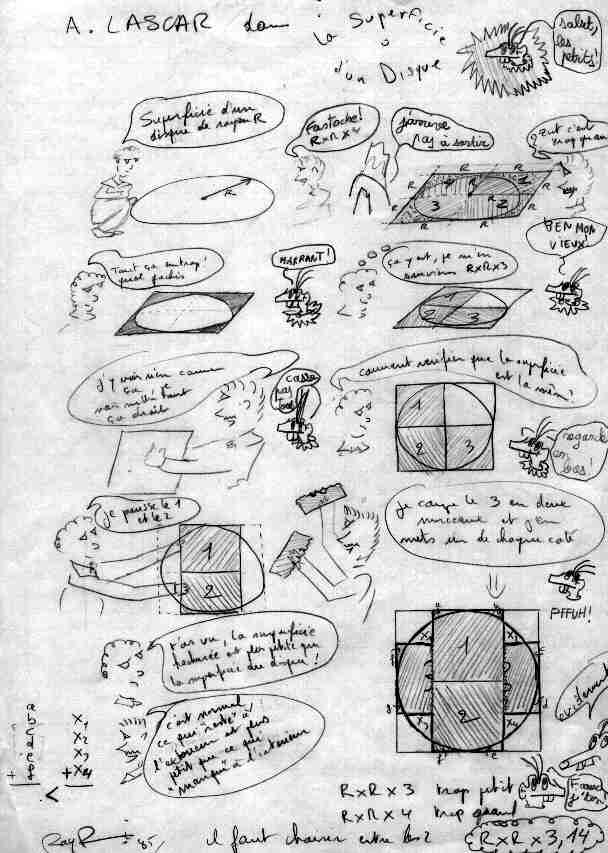 A. LASCAR dans
la Superficie
d'un Disque
salut,
les
petits!
Superficie d'un
disque de rayon R
R
Fastoche!
R x R x 4
j'arrive
pas à sortir
Zut c'est
trop grand
R R
R R
R R
R R
1
2
3
Tout ça en trop!
MARRANT!
ça y est, je m'en
souviens R x R x 3
BEN MON
VIEUX
1
2 3
j'y vois rien comme
ça je
vais mettre tout
ça droit
casse
pas
tout
comment vérifier que la superficie
est la même?
1
2 3
regarde
en
bas!
je pousse le 1
et le 2
1
2
3
je coupe le 3 en deux
morceaux et j'en
mets un de chaque coté
PFFUH!
t'as vu, la superficie
hachurée est plus petite que
la superficie du disque!
1
2
c'est normal
ce qui reste à
l'extérieur est plus
petit que ce qui
manque à l'intérieur
évidemment
a
b
c
d
e
f
+
<
x1
x2
x3
+x4
R x R x 3 trop petit
R x R x 4 trop grand
il faut choisir entre les 2
R x R x 3,14